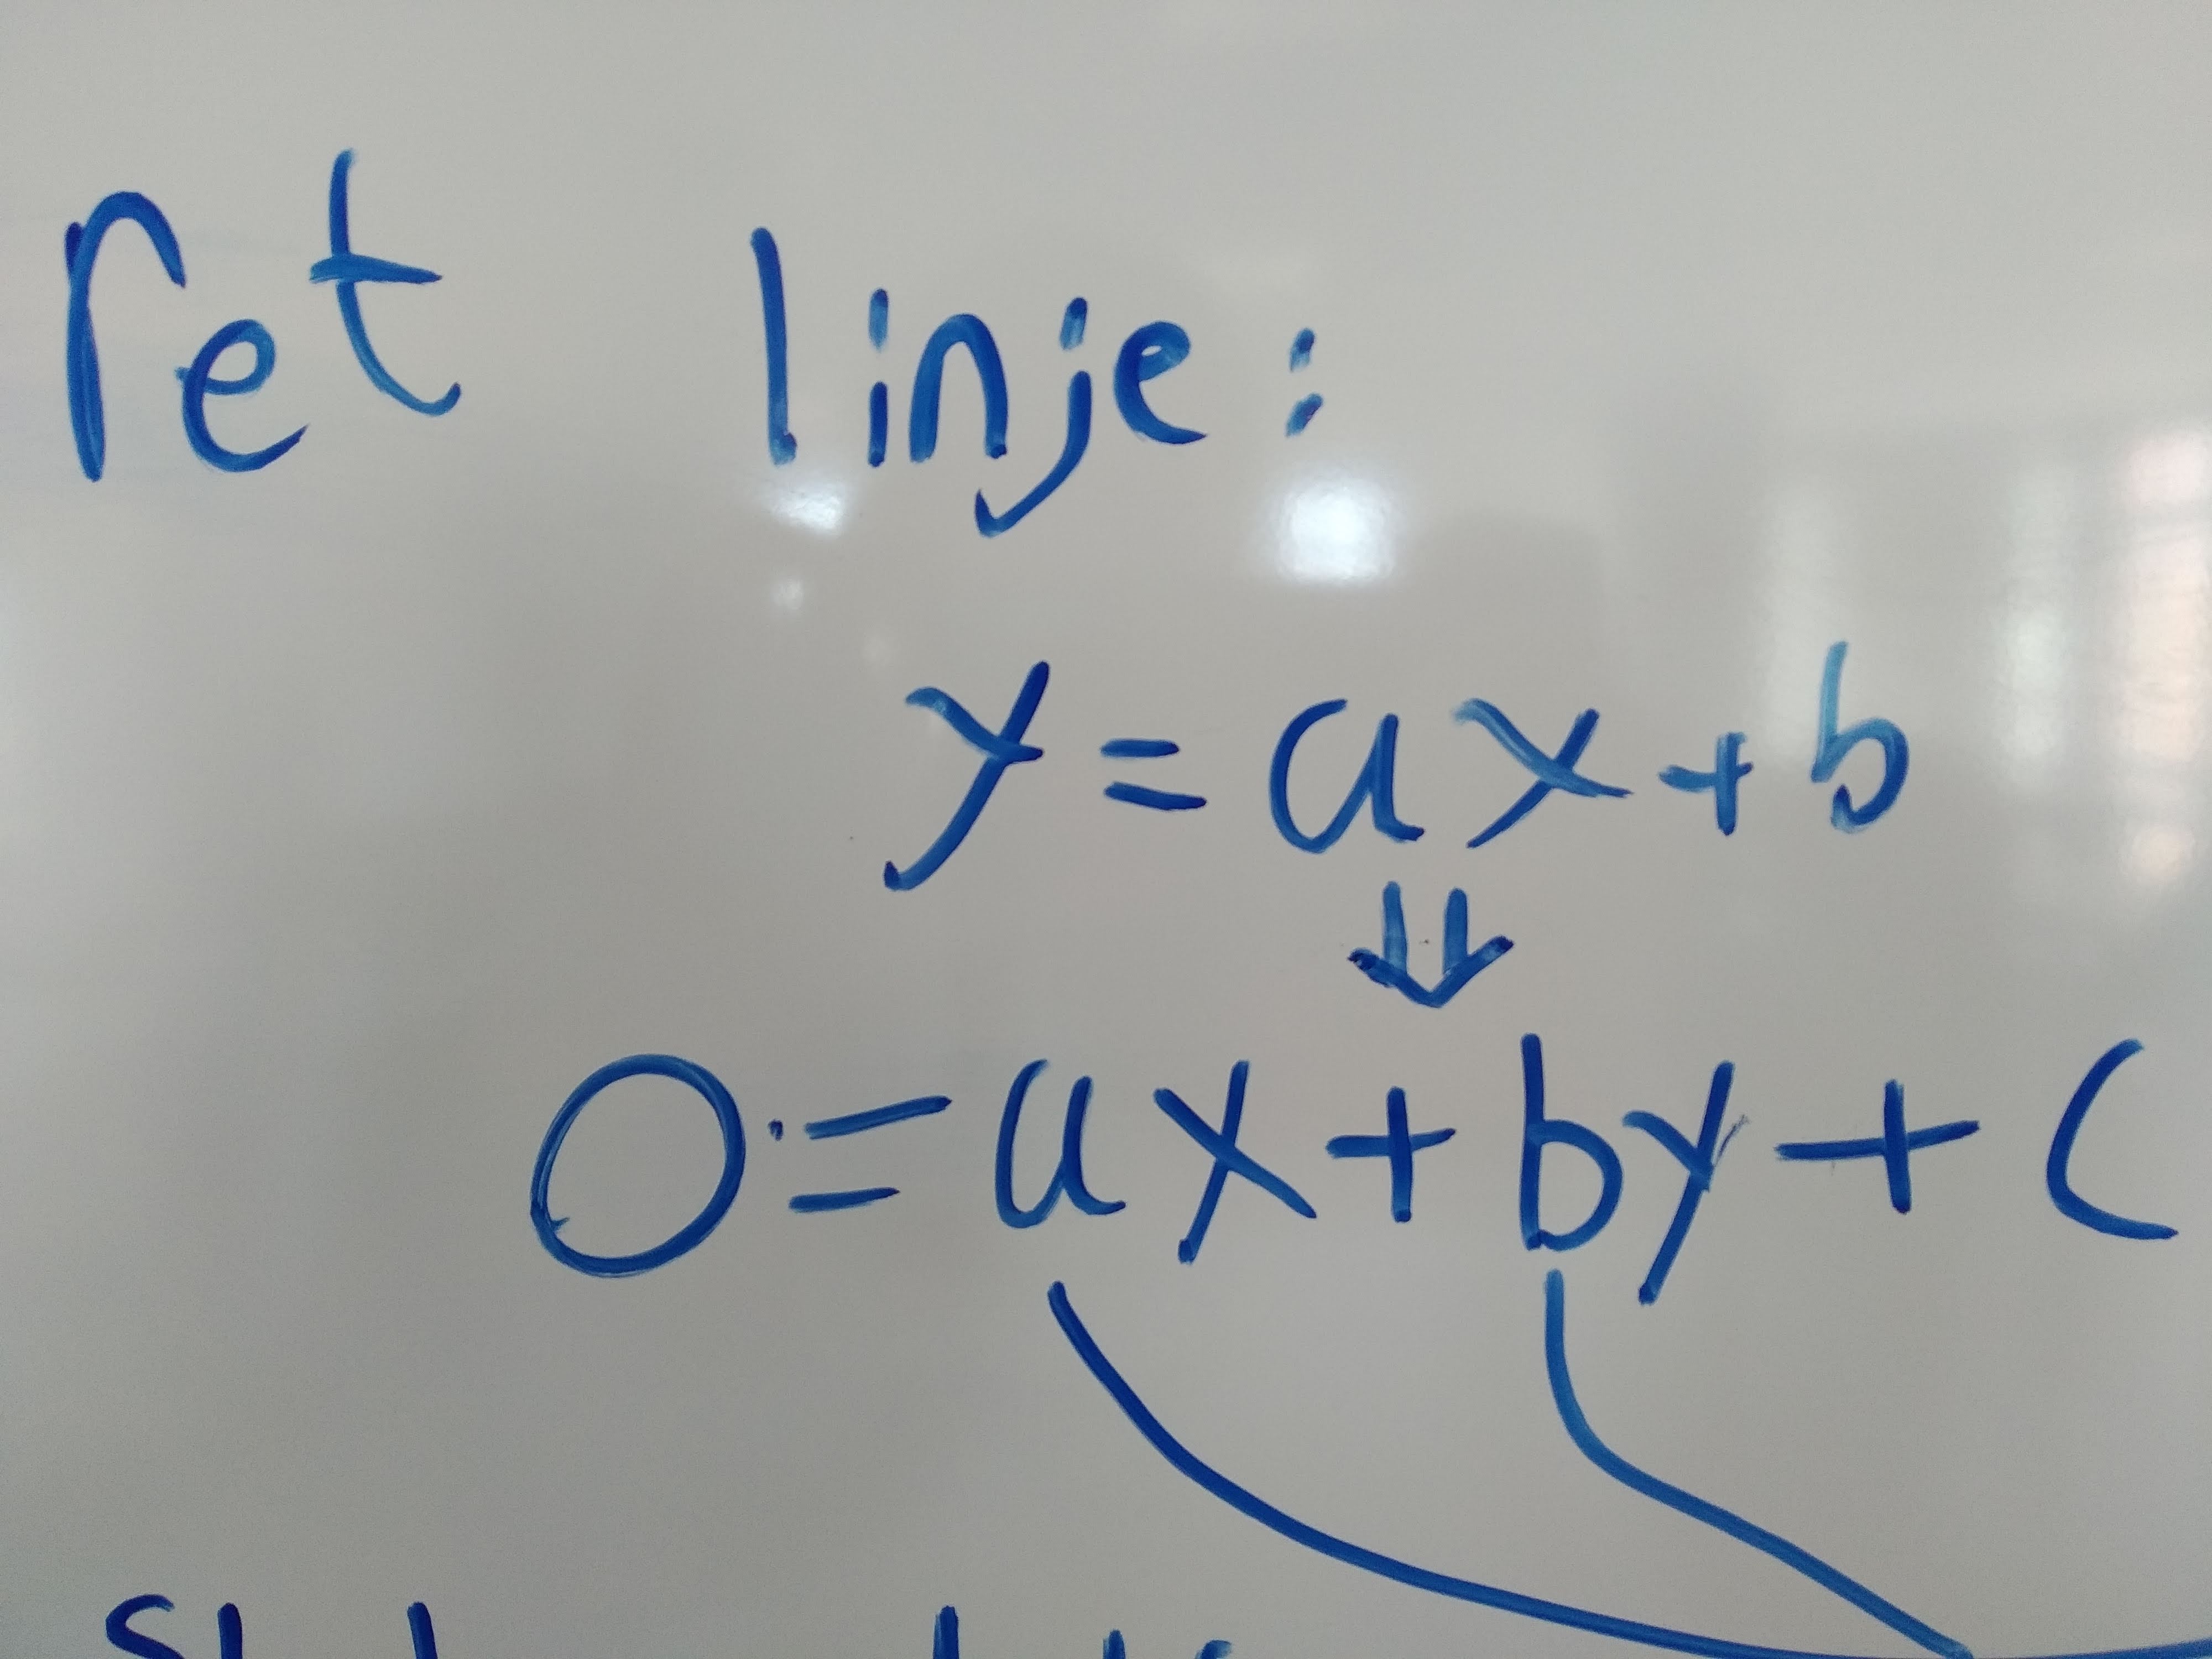 ret linje:
y = ax + b
⇓
0 = ax + by + c